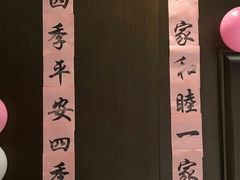 四季平安四季
家和睦一家